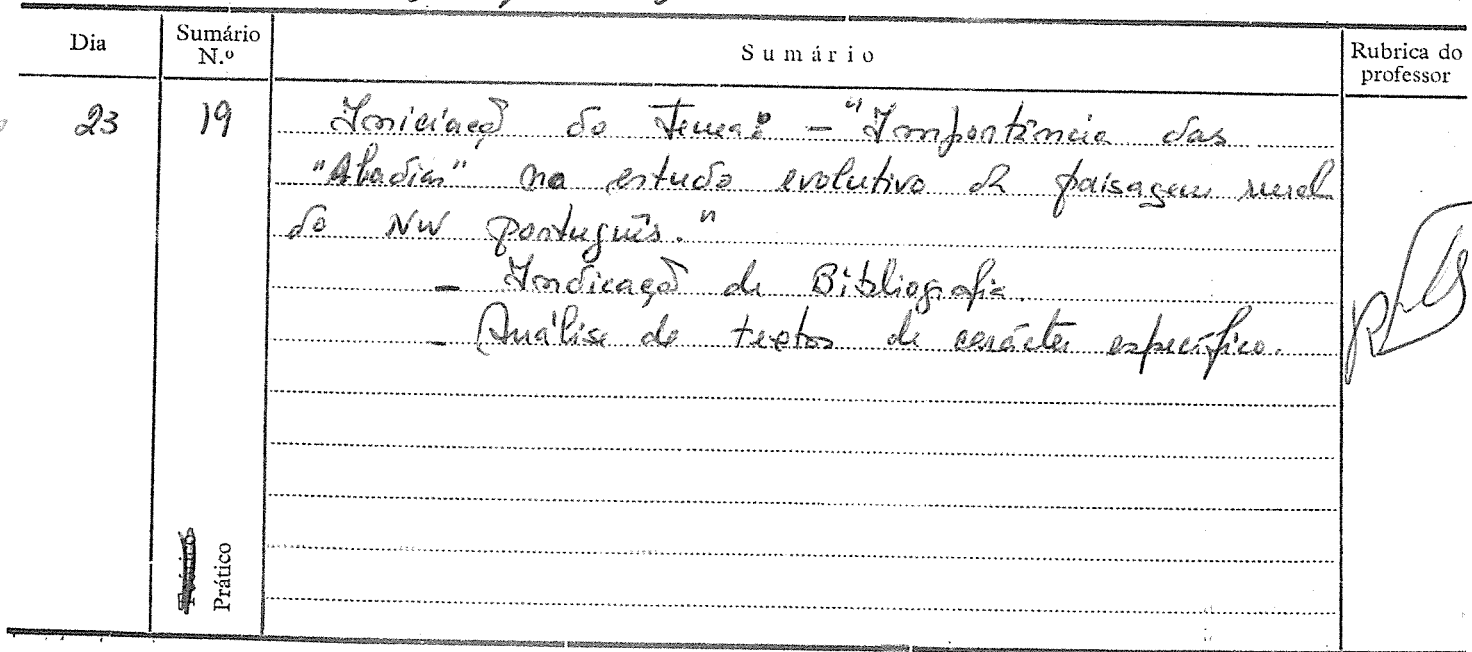 Dia
Sumário
N.º
Sumário
Rubrica do
professor
23
19
Iniciaçã do Tema: - "Importância das
"Abadias" no estudo evolutivo da paisagem rural
do NW português."
- Indicaçã de Bibliografia.
- Análise de textos de carácter específico.
Prático